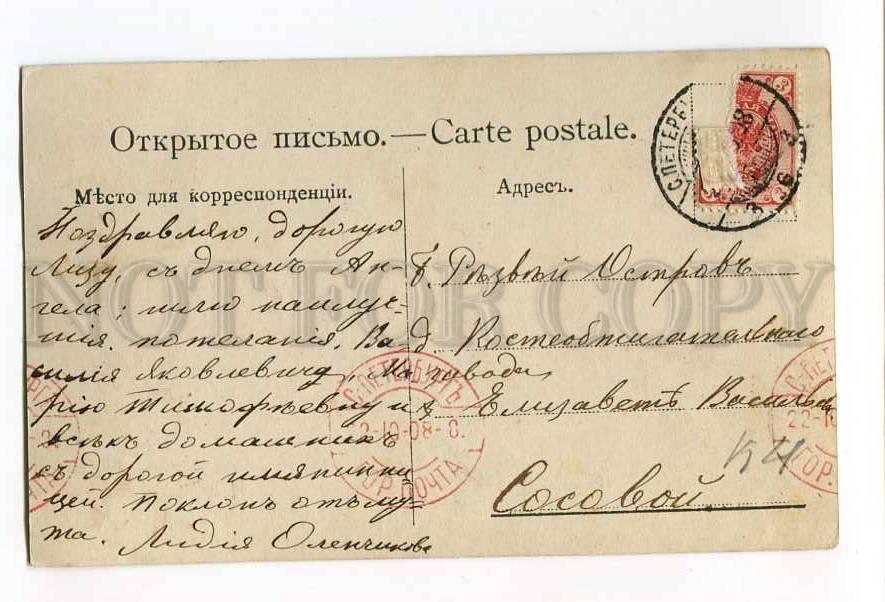 Открытое письмо. — Carte postale.
Мѣсто для корреспонденціи.
Поздравляю, дорогую
Лизу, съ днемъ Ан-
гела; шлю наилуч-
шія пожеланія. Ва-
силія Яковлевича, Ма-
рію Тимофѣевну и
всѣхъ домашнихъ
съ дорогой имянинни-
цей. Поклонъ отъ му-
жа. Лидія Оленчикова
Адресъ.
Б. Рѣзвый Островъ
д. Костеобжигательного
завода
Елизаветѣ Васильевнѣ
Сосовой.
С.ПЕТЕРБ
3
С.ПЕТЕРБУРГЪ
22-10-08-8.
ГОР.ПОЧТА
С.ПЕТЕ
22-1
ГОР.
NOT FOR COPY